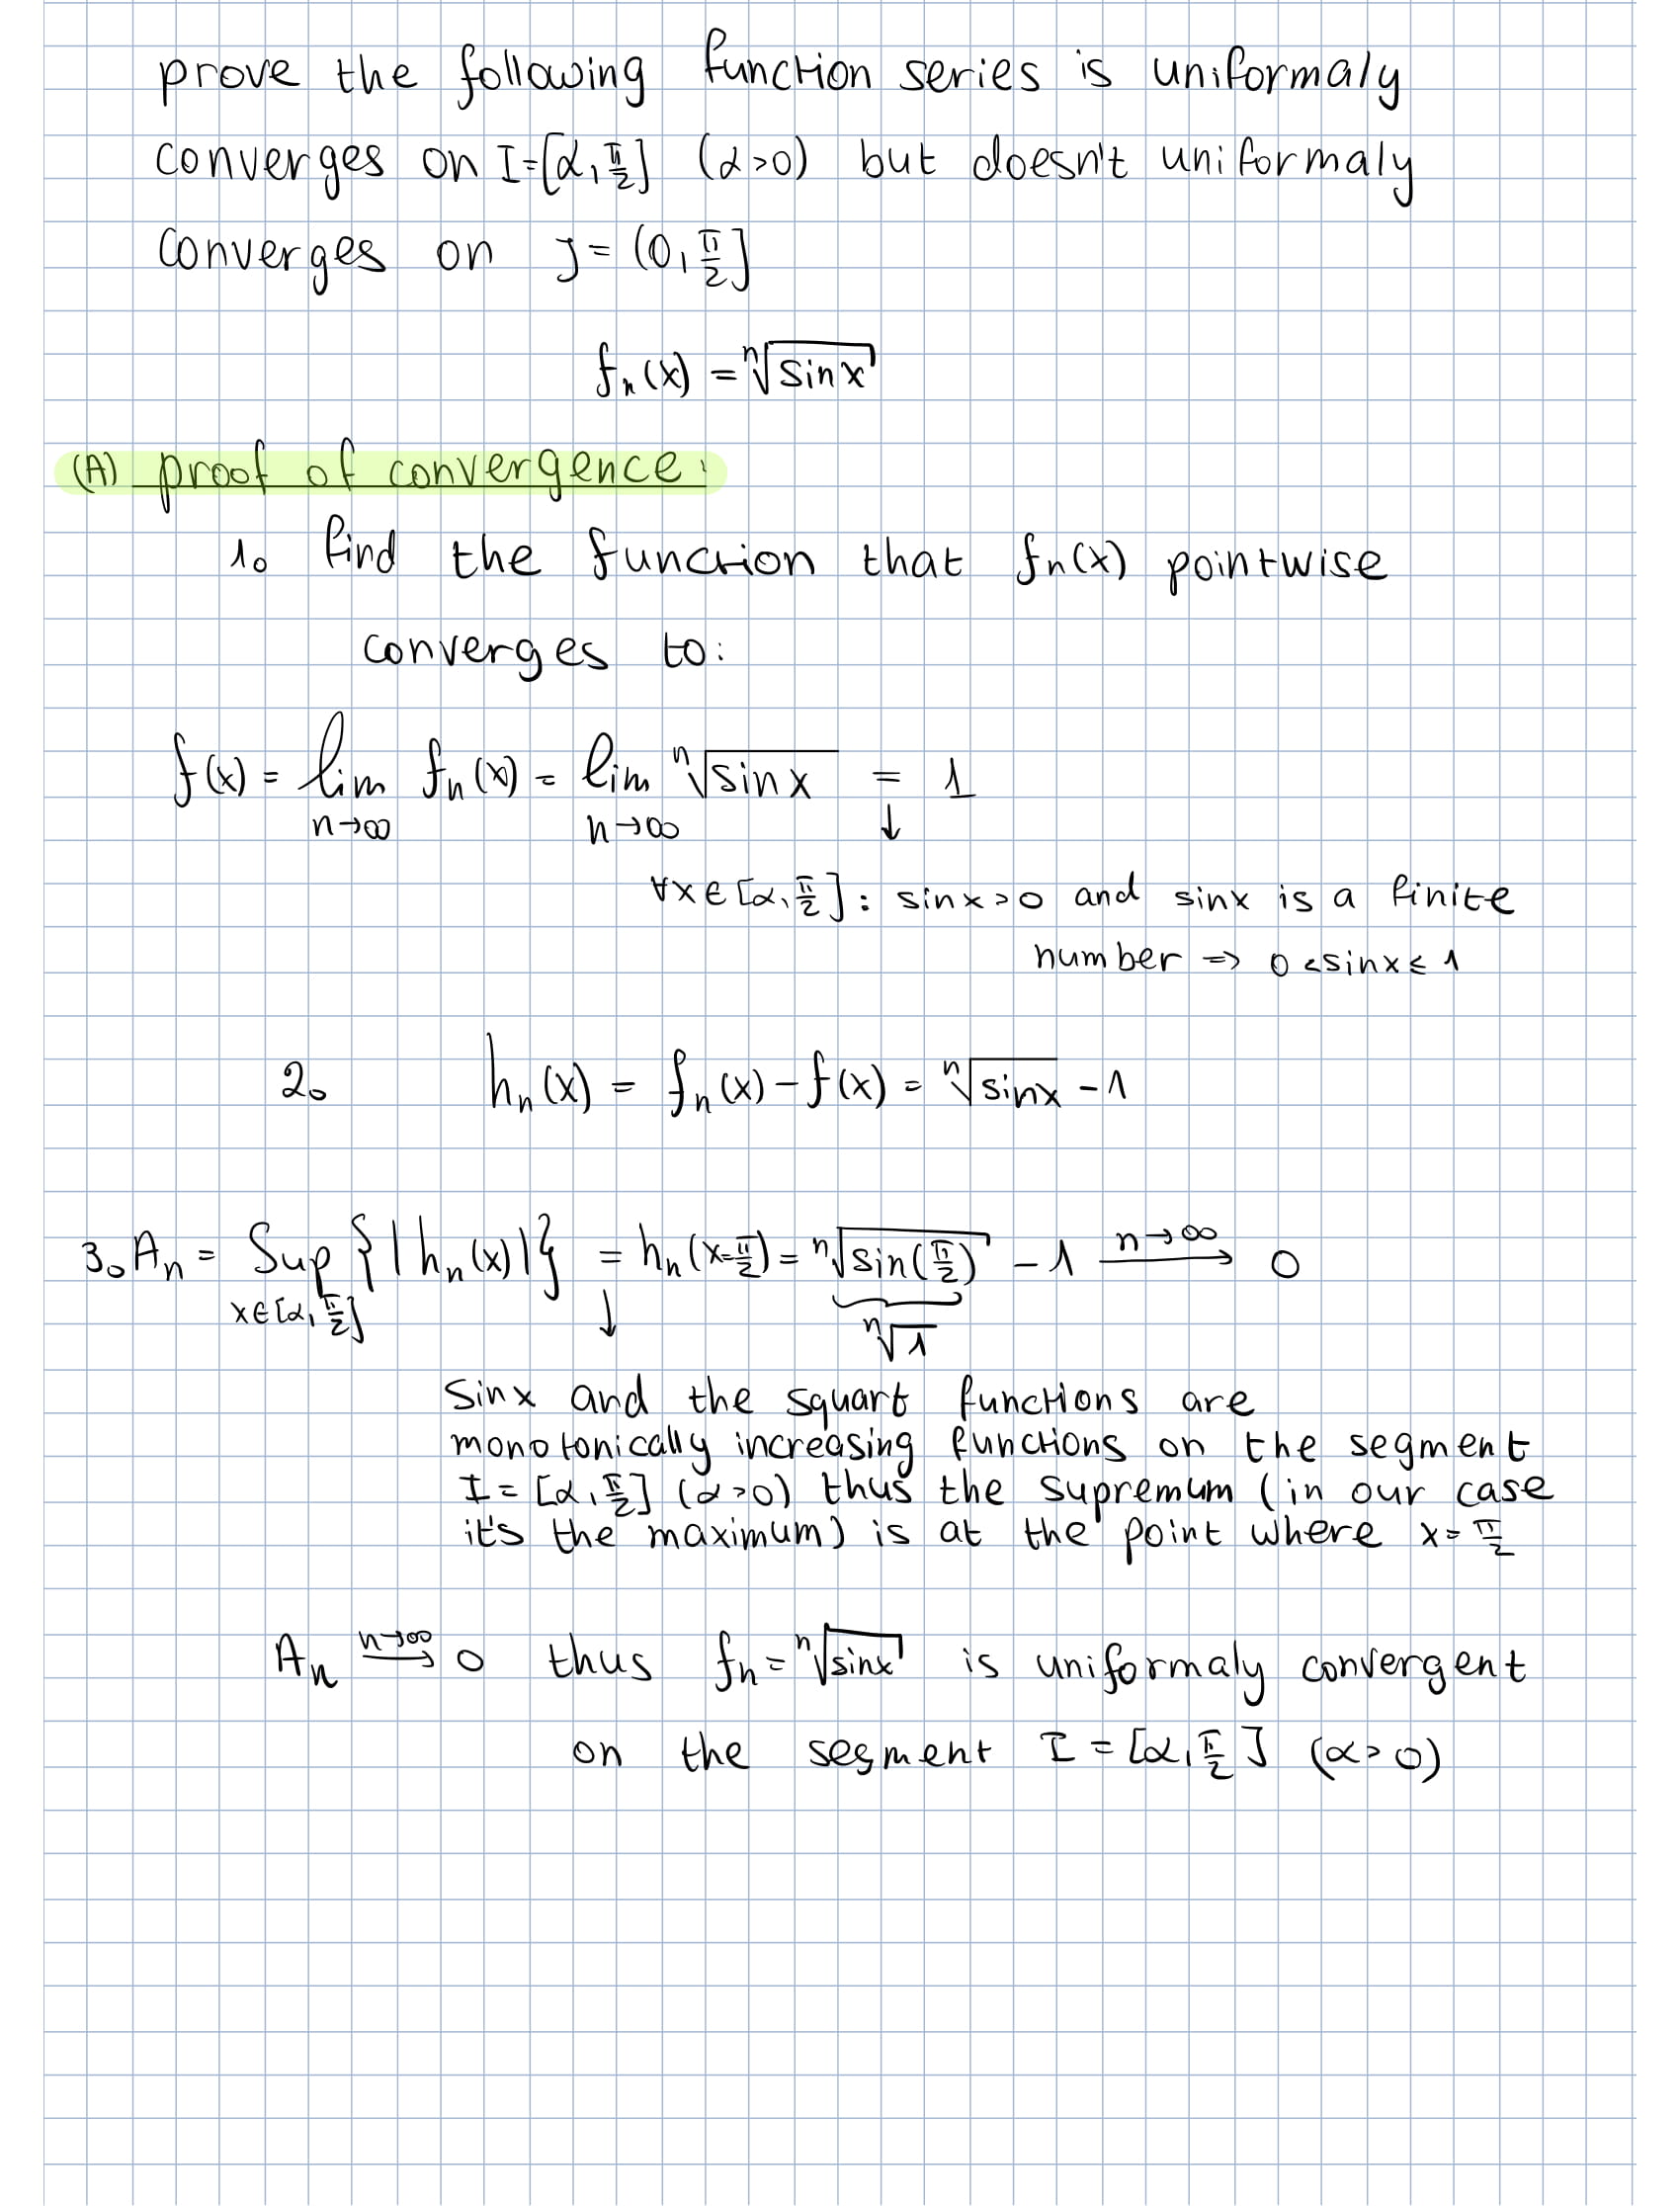 prove the following function series is uniformaly
converges on I=[α,π/2] (α>0) but doesn't uniformaly
converges on J=(0,π/2]
fₙ(x) = ⁿ√sinx
(A) proof of convergence:
1. find the function that fₙ(x) pointwise
converges to:
f(x) = lim n→∞ fₙ(x) = lim n→∞ ⁿ√sinx = 1
↓
∀x∈[α,π/2]: sinx>0 and sinx is a finite
number => 0<sinx≤1
2. hₙ(x) = fₙ(x) - f(x) = ⁿ√sinx - 1
3. Aₙ = Sup x∈[α,π/2] {|hₙ(x)|} = hₙ(x=π/2) = ⁿ√sin(π/2) - 1 n→∞ → 0
↓ ⁿ√1
sinx and the squart functions are
monotonically increasing functions on the segment
I=[α,π/2] (α>0) thus the supremum (in our case
it's the maximum) is at the point where x=π/2
Aₙ n→∞ → 0 thus fₙ=ⁿ√sinx is uniformaly convergent
on the segment I=[α,π/2] (α>0)